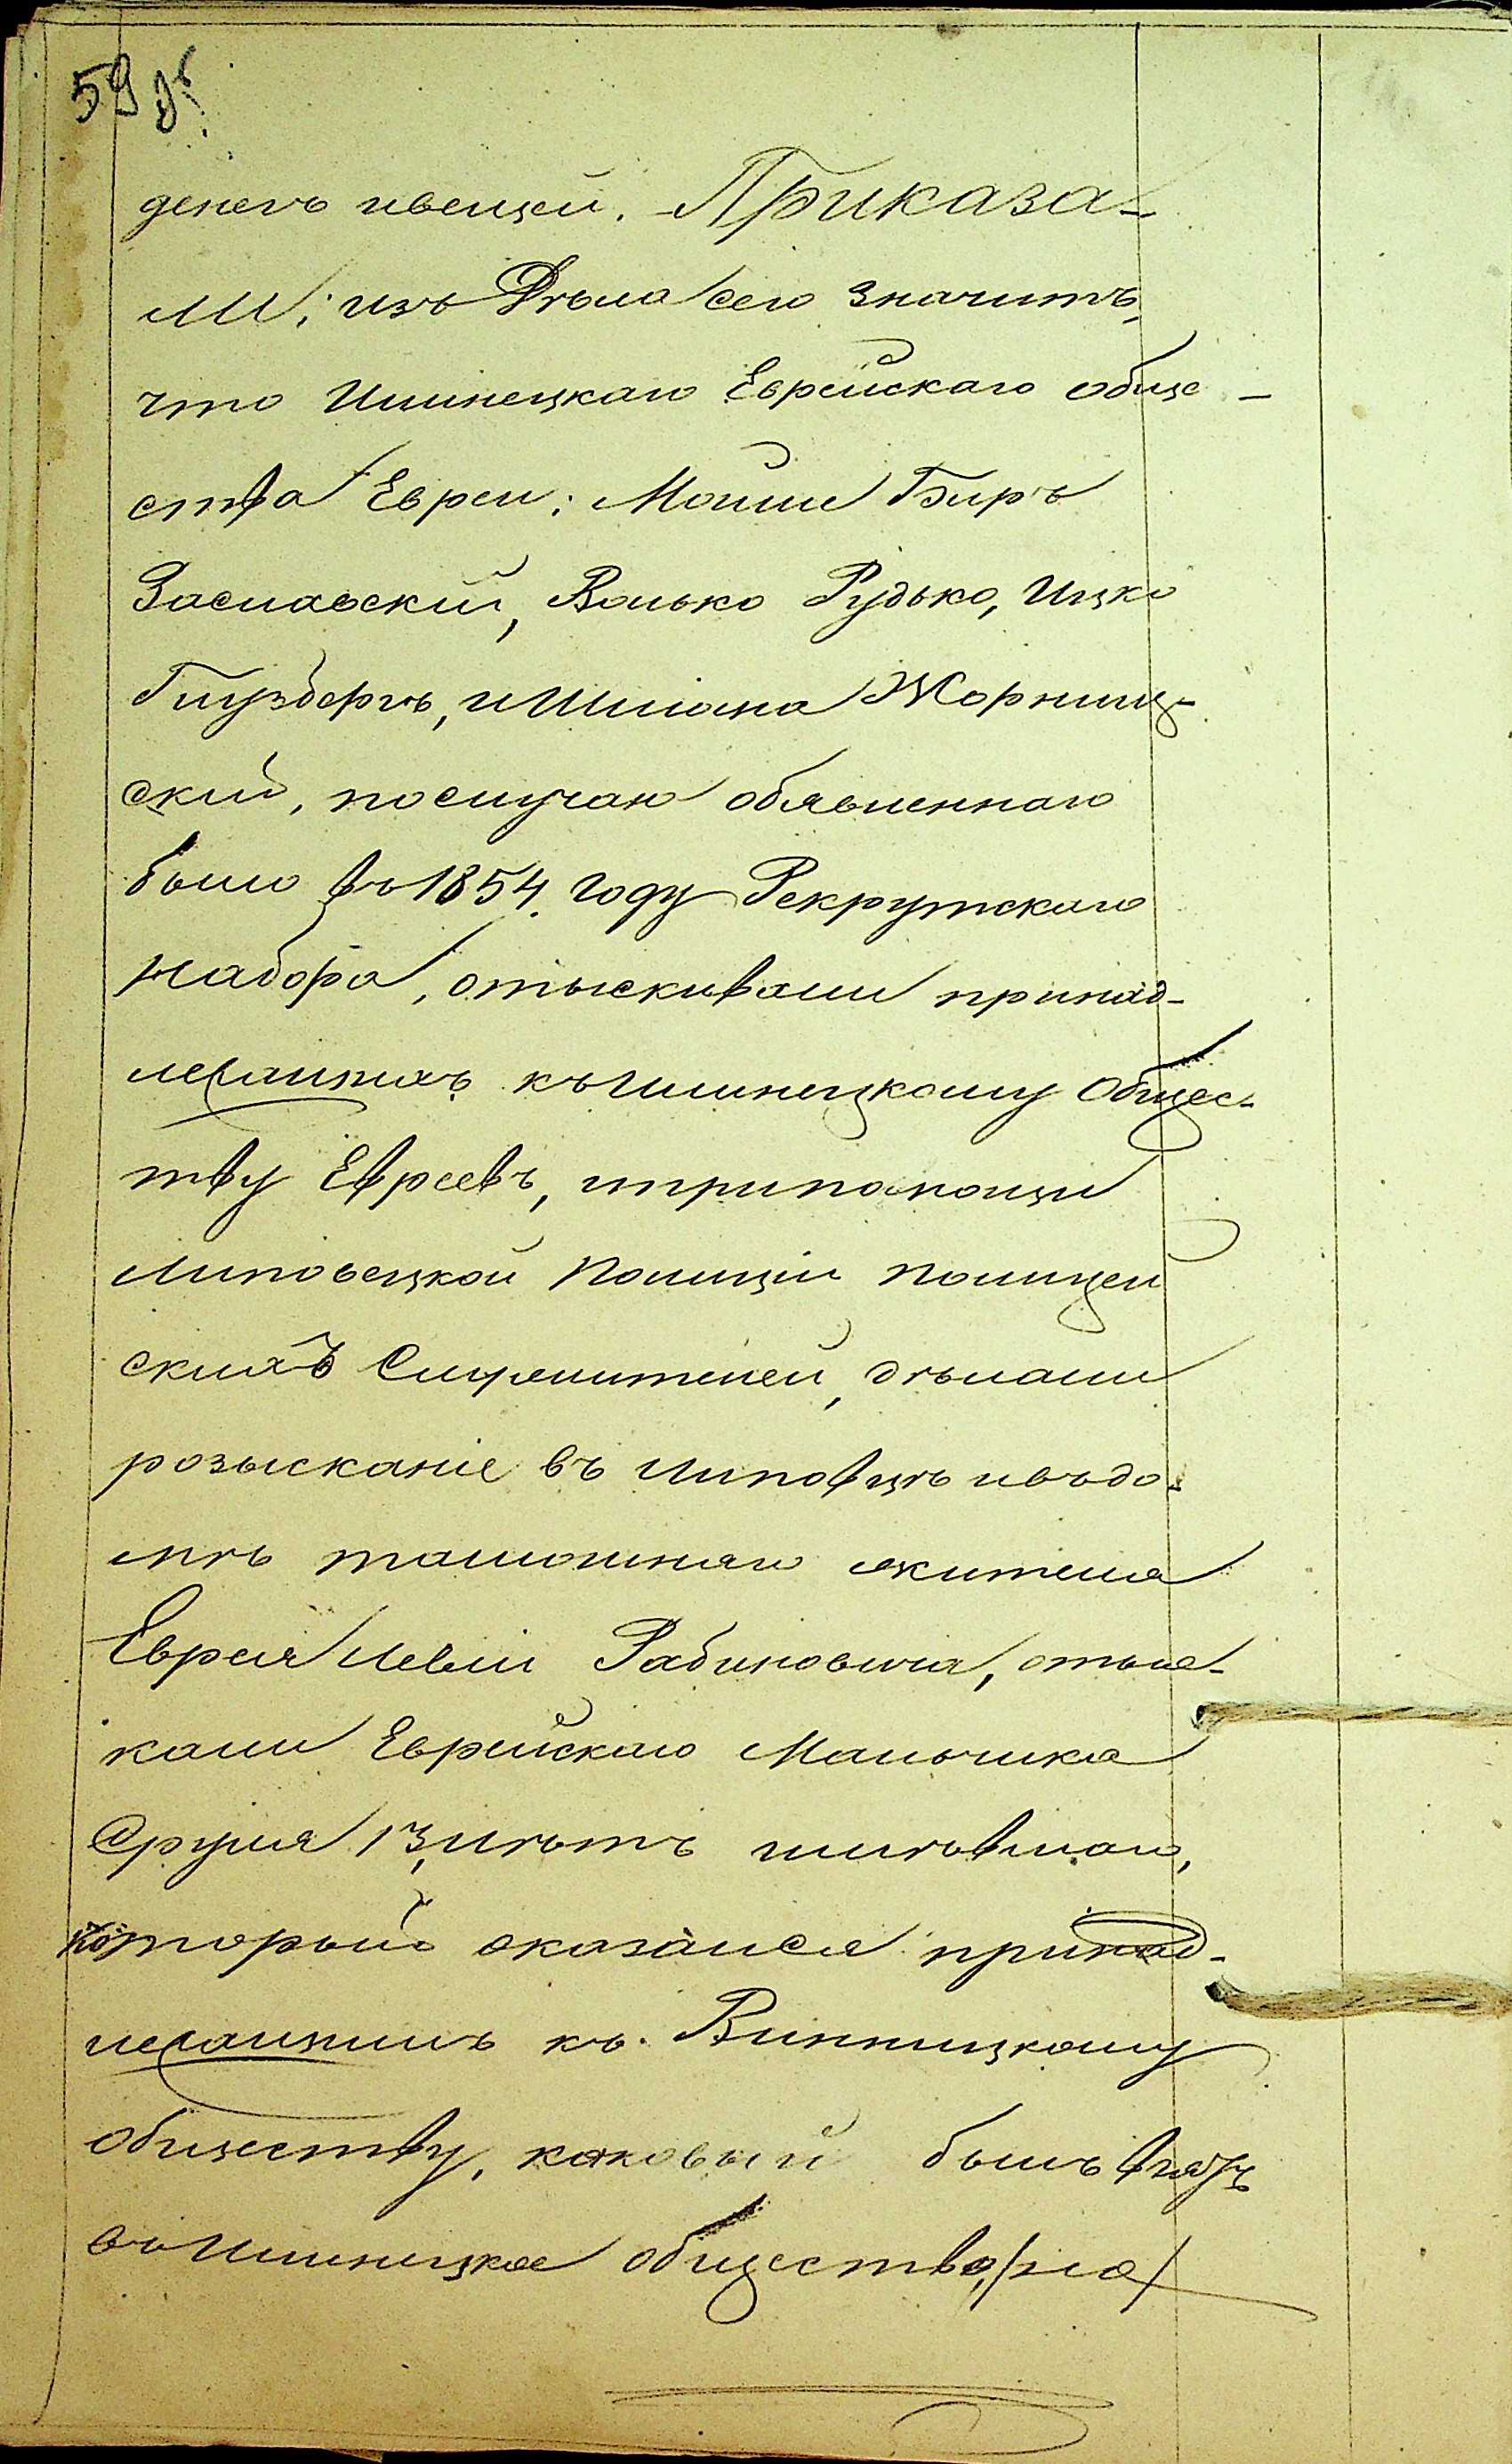 59 об.
денегъ ивещей. Приказа-
ли; изъ Дѣла сего значитъ,
что Илинецкаго Еврейскаго обще-
ства Евреи: Мошие Биръ
Заславский, Волько Рудько, Ицко
Глузбергъ, и Шліома Жорниц-
ский, послучаю обявленнаго
было въ 1854. году Рекрутскаго
набора, отыскивали принад-
лежащихъ къ Илинецкому Общес-
тву Евреевъ, ипри помощи
Липовецкой Полиціи Полицей
скихъ Служителей, дѣлали
розысканіе въ Липовцѣ ивъ до-
мѣ тамошняго жителя
Еврея Левіи Рабиновича, отыс-
кали Еврейскаго Мальчика
Сруля 13, лѣтъ имѣвшаго,
который оказался принад-
лежащимъ къ Винницкому
обществу, каковый былъ взятъ
въ Илинецкое общество, /на/